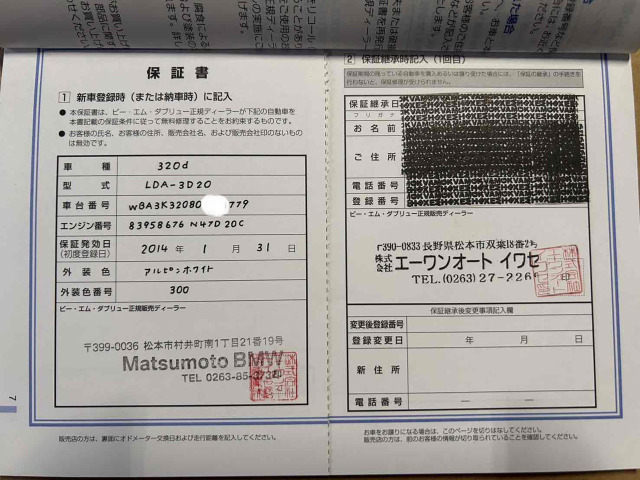 保証書
1 新車登録時（または納車時）に記入
● 本保証書は、ビー・エム・ダブリュー正規ディーラーが下記の自動車を
本書記載の保証条件に従って無料修理することをお約束するものです。
● お客様の氏名、お客様の住所、販売会社名、および販売会社印のないもの
は無効です。
車種 320d
型式 LDA-3D20
車台番号 WBA3K32080 779
エンジン番号 83958676 N47D20C
保証発効日 2014年 1月 31日
(初度登録日)
外装色 アルピンホワイト
外装色番号 300
ビー・エム・ダブリュー正規販売ディーラー
〒399-0036 松本市村井町南1丁目21番19号
Matsumoto BMW
TEL 0263-85-
7
販売店の方は、裏面にオドメーター交換日および走行距離を記入してください。
2 保証継承時記入（1回目）
保証期間の残っている自動車を購入あるいは譲り受けた場合には、「保証の継承」の手続きを
行わないと、保証修理が受けられません。
保証継承日
フリガナ
お名前
ご住所
電話番号
登録番号
ビー・エム・ダブリュー正規販売ディーラー
〒390-0833 長野県松本市双葉18番2号
株式会社 エーワンオート イワセ
TEL.(0263)27-226
印
保証継承後変更事項記入欄
変更後登録番号
登録変更日 年 月 日
新住所
電話番号 ― ―
お車をお譲りになる場合は、このページを切りはなしてください。
販売店の方は、前のお客様の情報が切り取られていることを確認してください。